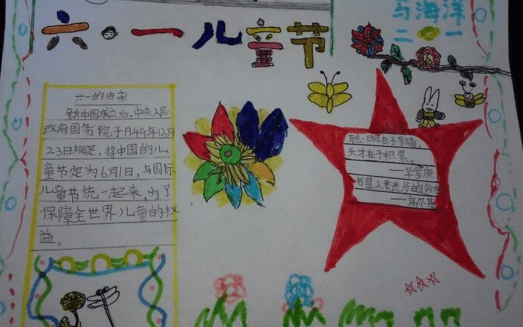 六·一儿童节
马海洋
二 一
六一的由来
新中国成立后,中央人民
政府国务院于1949年12月
23日规定,将中国的儿
童节定为6月1日,与国际
儿童节统一起来,为了
保障全世界儿童的权
益。
明在于
天才在于积累。
——华罗庚
书是人类进步的
——高尔基